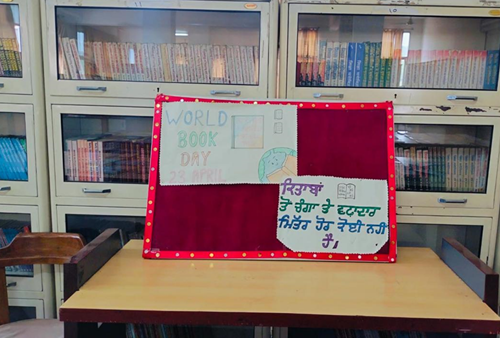 WORLD
BOOK
DAY
23 APRIL
ਕਿਤਾਬਾਂ
ਤੋਂ ਚੰਗਾ ਤੇ ਵਫ਼ਾਦਾਰ
ਮਿੱਤਰ ਹੋਰ ਕੋਈ ਨਹੀਂ
ਹੈ।